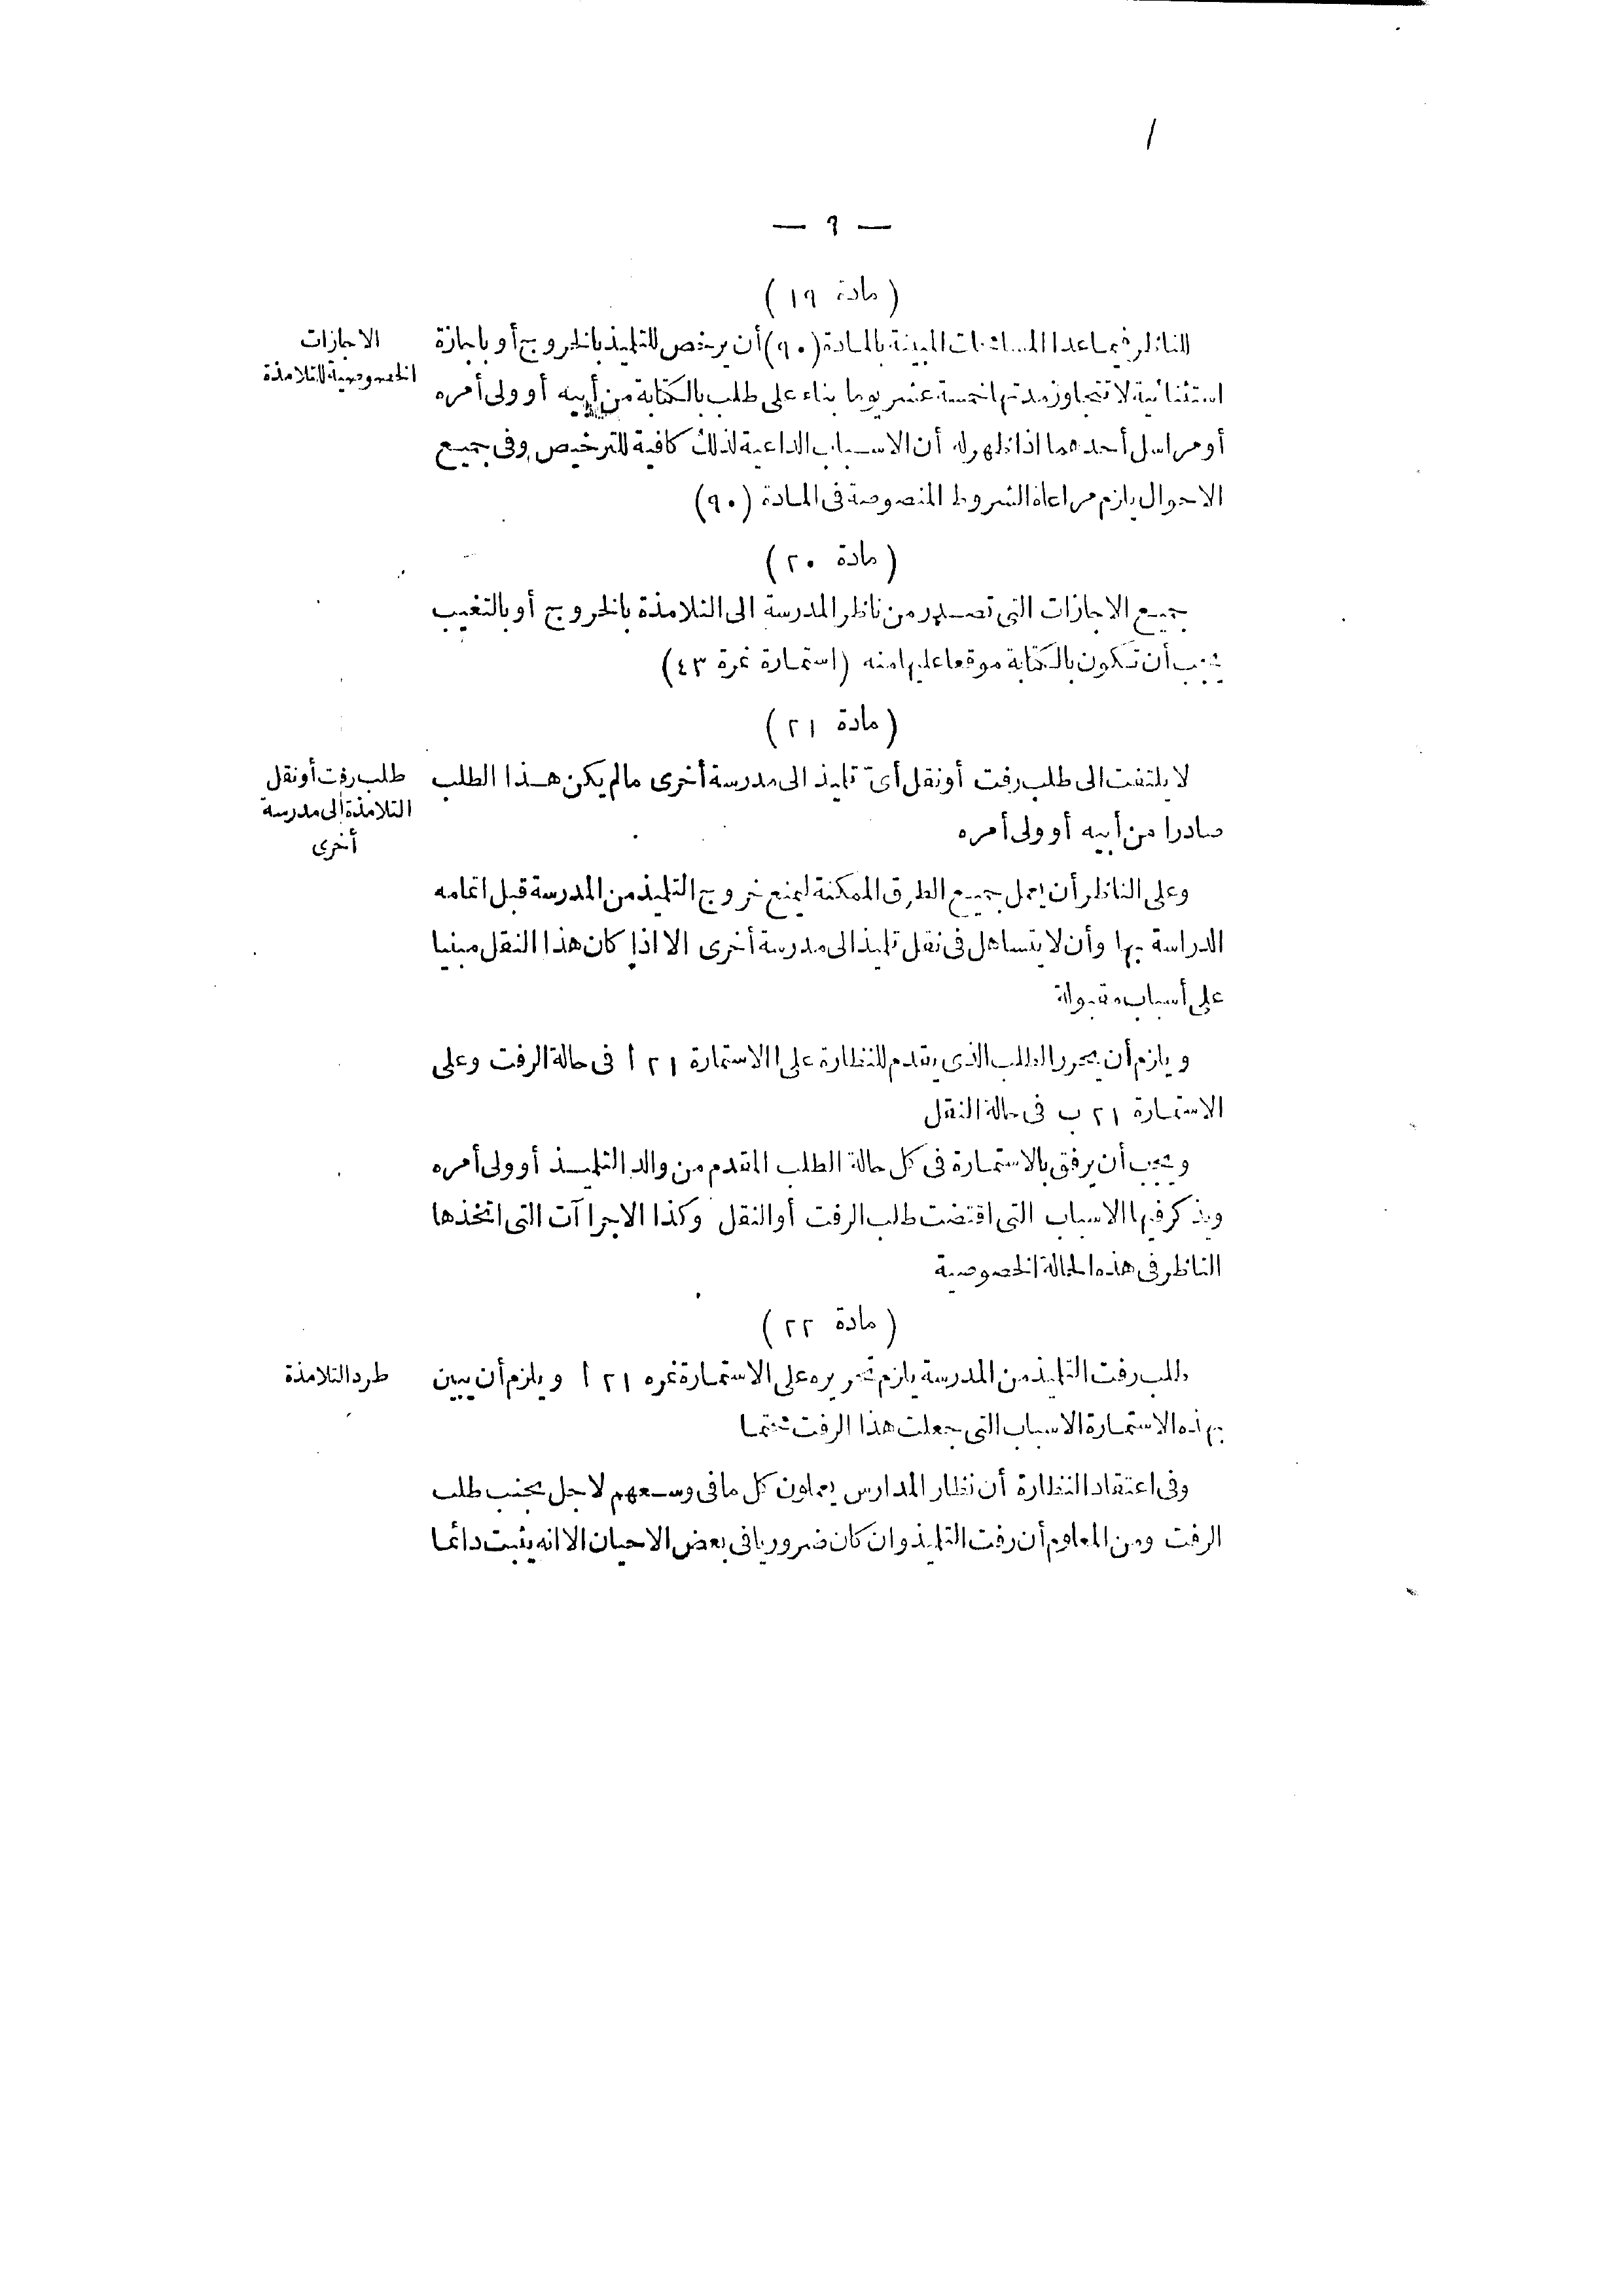 — ٩ —
( مادة ١٩ )
للناظر فيما عدا المسامحات المبينة بالمادة (٩٠) أن يرخص للتلميذ بالخروج أو باجازة
استثنائية لا تتجاوز مدتها خمسة عشر يوما بناء على طلب بالكتابة من أبيه أو ولى أمره
أو مراسل أحدهما اذا ظهر له أن الاسباب الداعية لذلك كافية للترخيص وفى جميع
الاحوال يلزم مراعاة الشروط المنصوصة فى المادة (٩٠)
الاجازات
الخصوصية للتلامذة
( مادة ٢٠ )
جميع الاجازات التى تصدر من ناظر المدرسة الى التلامذة بالخروج أو بالتغيب
يجب أن تكون بالكتابة موقعا عليها منه (استمارة نمرة ٤٣)
( مادة ٢١ )
لا يلتفت الى طلب رفت أو نقل أىّ تلميذ الى مدرسة أخرى مالم يكن هذا الطلب
صادرا من أبيه أو ولى أمره
طلب رفت أو نقل
التلامذة الى مدرسة
أخرى
وعلى الناظر أن يعمل جميع الطرق الممكنة ليمنع خروج التلميذ من المدرسة قبل اتمامه
الدراسة بها وأن لا يتساهل فى نقل تلميذ الى مدرسة أخرى الا اذا كان هذا النقل مبنيا
على أسباب مقبولة
ويلزم أن يحرر الطلب الذى يقدم للنظارة على الاستمارة ٢١ ا فى حالة الرفت وعلى
الاستمارة ٢١ ب فى حالة النقل
ويجب أن يرفق بالاستمارة فى كل حالة الطلب المقدم من والد التلميذ أو ولى أمره
ويذكر فيها الاسباب التى اقتضت طلب الرفت أو النقل وكذا الاجراآت التى اتخذها
الناظر فى هذه الحالة الخصوصية
( مادة ٢٢ )
طلب رفت التلميذ من المدرسة يلزم تحريره على الاستمارة نمره ٢١ ا ويلزم أن يبين
بهذه الاستمارة الاسباب التى جعلت هذا الرفت محتما
طرد التلامذة
وفى اعتقاد النظارة أن نظار المدارس يعملون كل مافى وسعهم لاجل تجنب طلب
الرفت ومن المعلوم أن رفت التلميذ وان كان ضروريا فى بعض الاحيان الا انه يثبت دائما